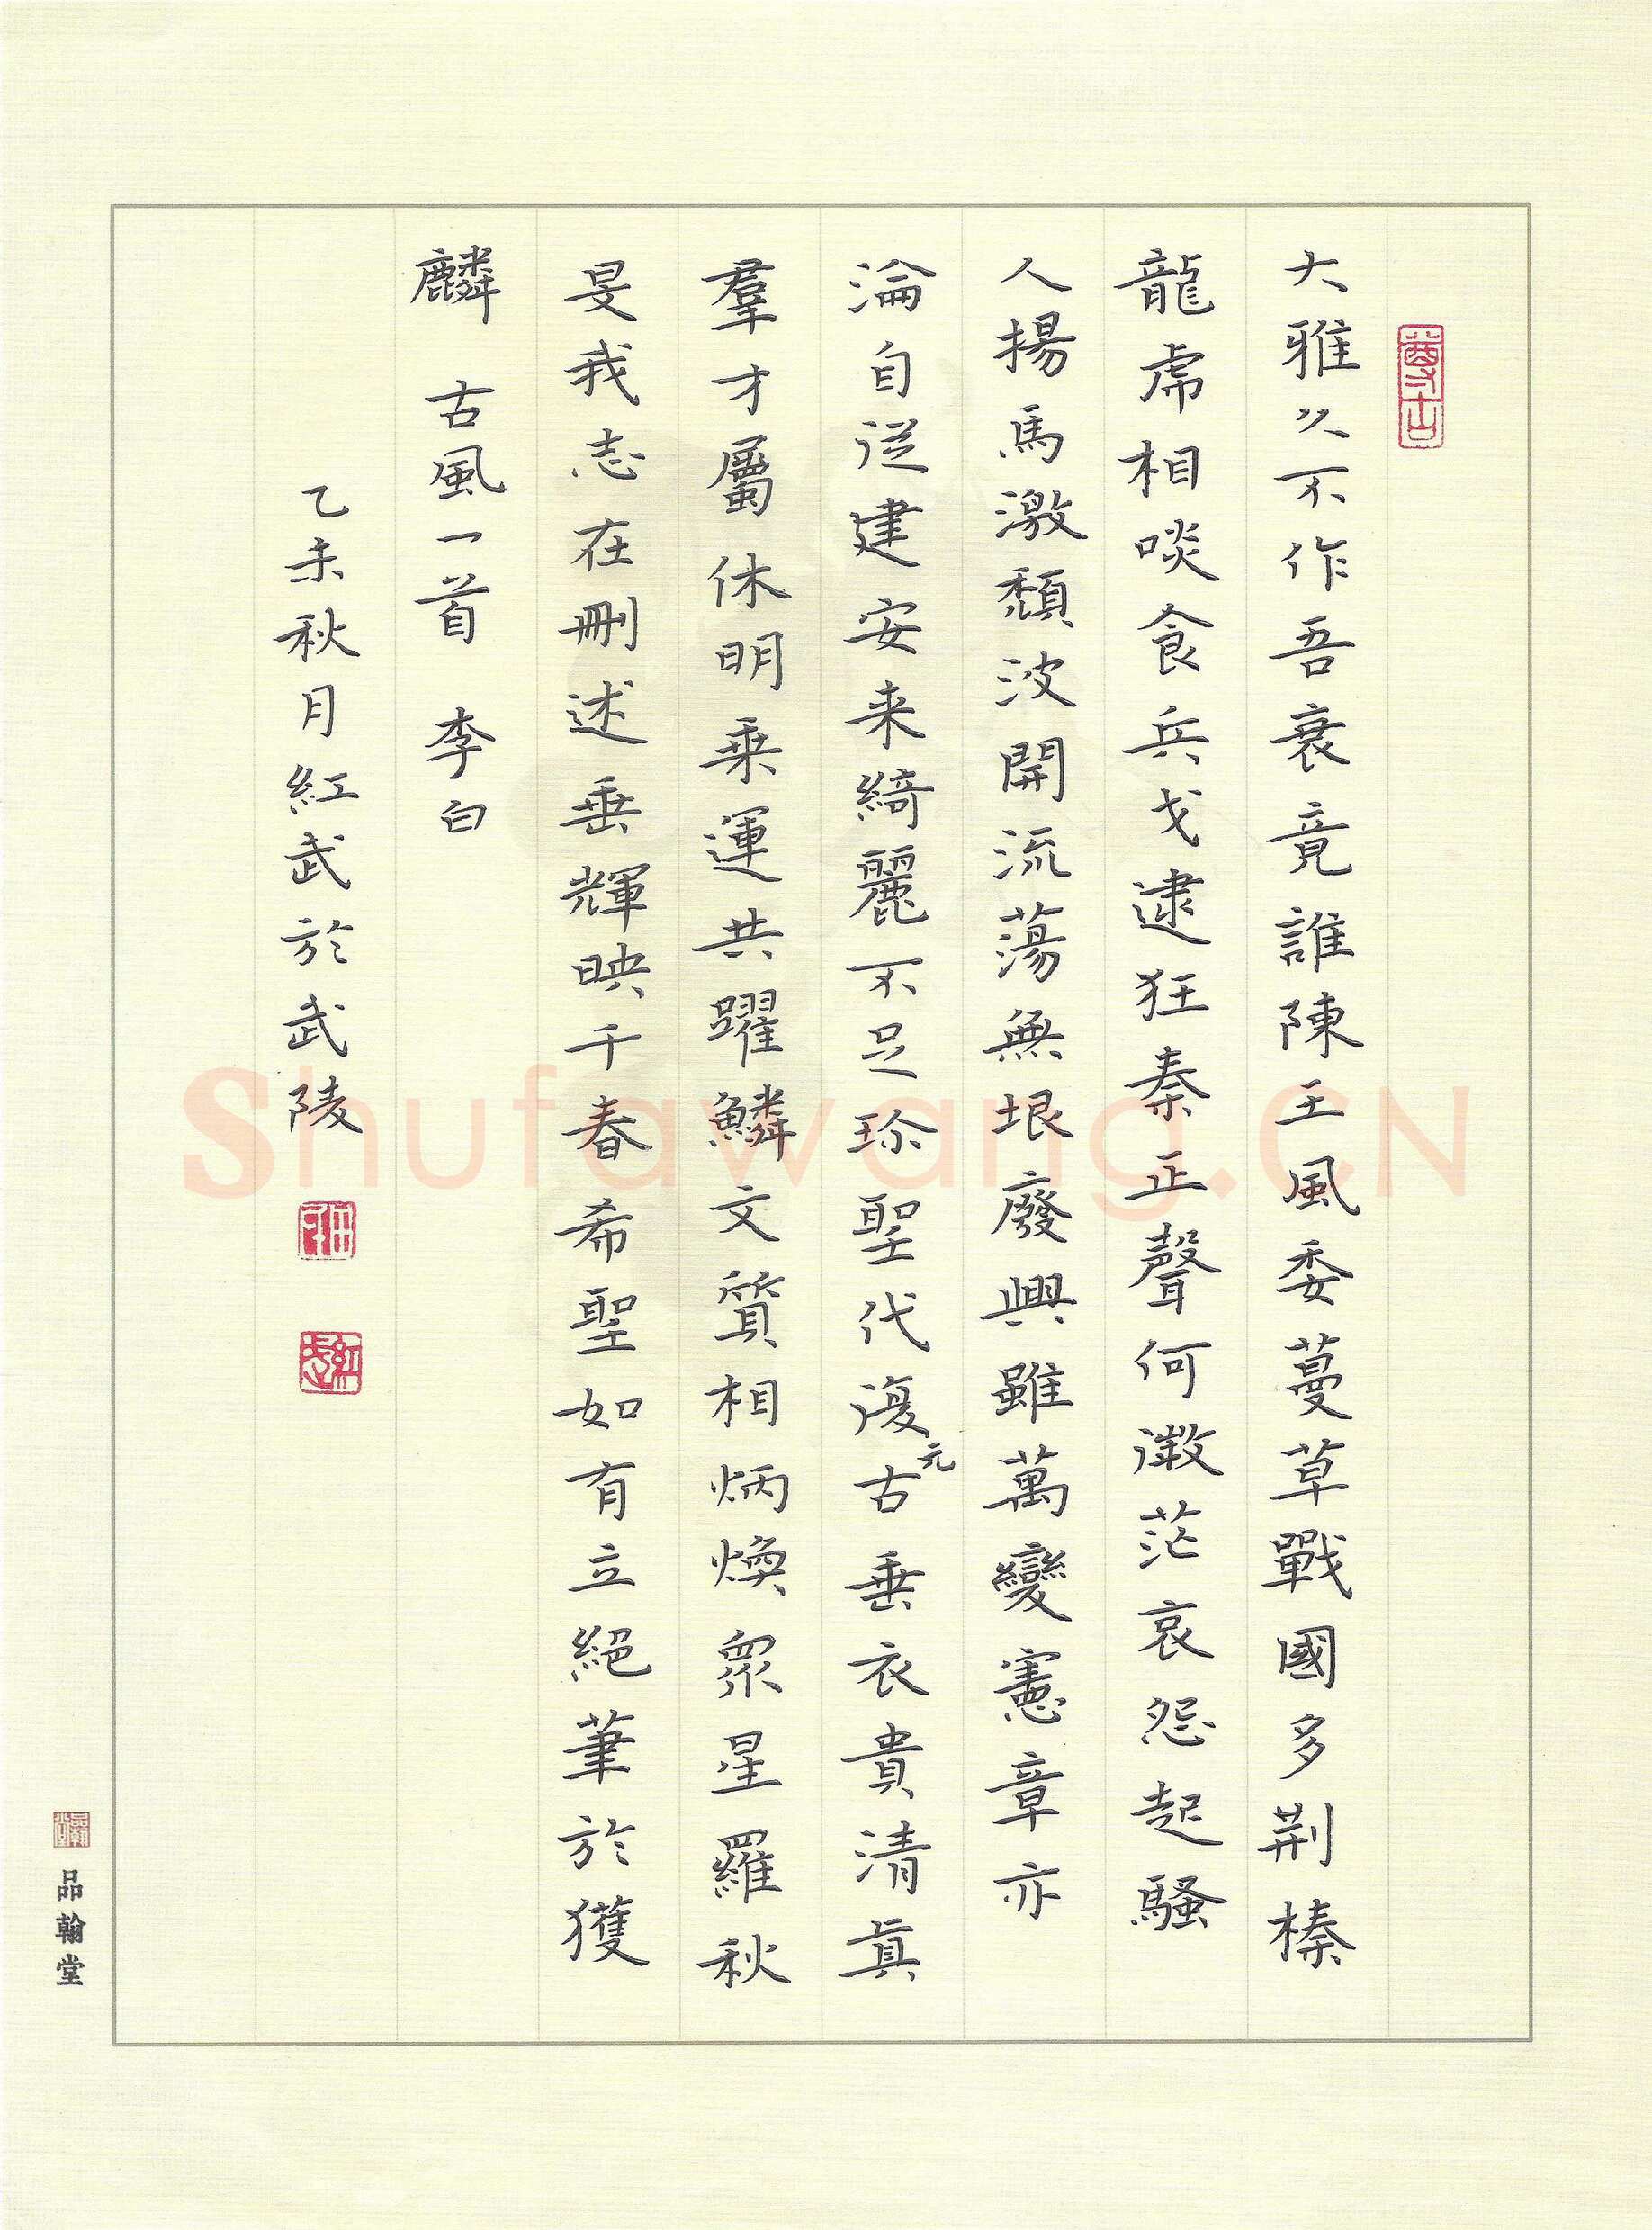 尊古
大雅久不作吾衰竟誰陳王風委蔓草戰國多荆榛
龍虎相啖食兵戈逮狂秦正聲何微茫哀怨起騷
人揚馬激頹波開流蕩無垠廢興雖萬變憲章亦
淪自從建安来綺麗不足珍聖代復元古垂衣貴清眞
羣才屬休明乗運共躍鱗文質相炳煥衆星羅秋
旻我志在刪述垂輝映千春希聖如有立絕筆於獲
麟 古風一首 李白
乙未秋月紅武於武陵
紅武
品翰堂
Shufawang.CN